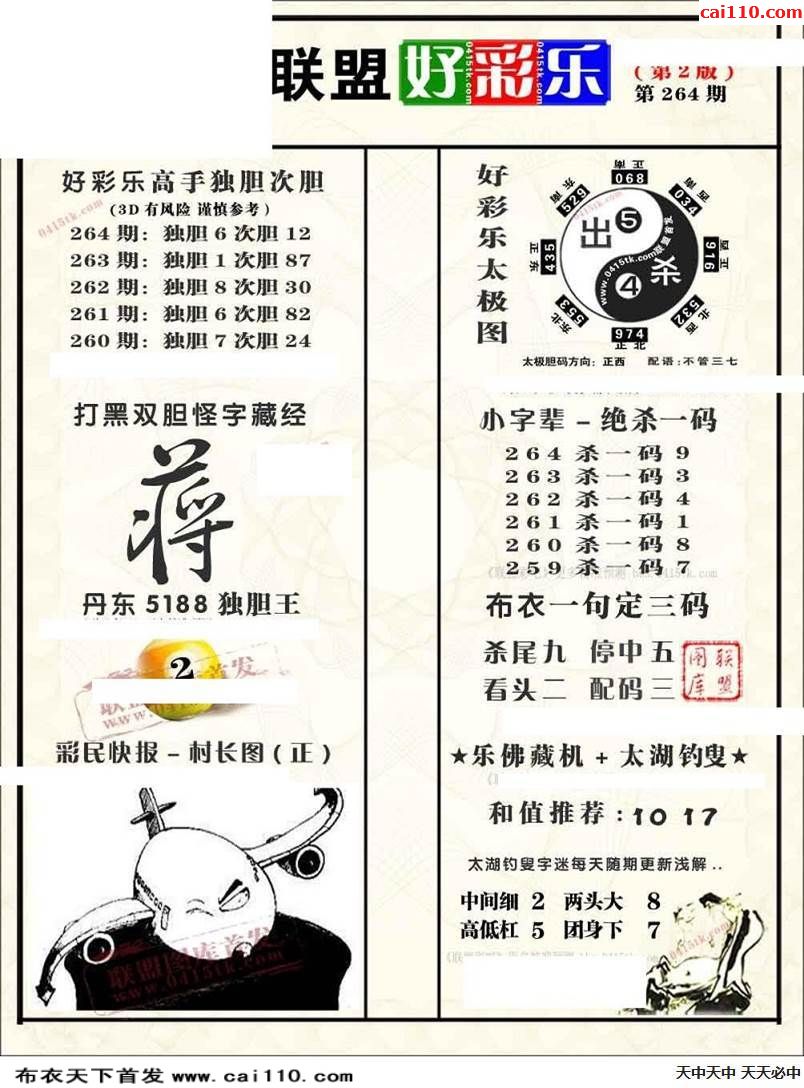 cai110.com
联盟 好彩乐
(第2版)
第264期
好彩乐高手独胆次胆
(3D有风险 谨慎参考)
264期: 独胆6次胆12
263期: 独胆1次胆87
262期: 独胆8次胆30
261期: 独胆6次胆82
260期: 独胆7次胆24
打黑双胆怪字藏经
蒋
丹东5188独胆王
2
联盟图库首发
彩民快报-村长图(正)
联盟图库首发
www.0415tk.com
好彩乐太极图
正南 068
东南 529
西南 034
正东 435
正西 916
东北 553
西北 532
正北 974
出 5
杀 4
www.0415tk.com联盟首发
太极胆码方向: 正西 配语:不管三七
小字辈-绝杀一码
264杀一码9
263杀一码3
262杀一码4
261杀一码1
260杀一码8
259杀一码7
布衣一句定三码
杀尾九 停中五
看头二 配码三
联盟图库
★乐佛藏机+太湖钓叟★
和值推荐:10 17
太湖钓叟字迷每天随期更新浅解..
中间细 2 两头大 8
高低杠 5 团身下 7
布衣天下首发 www.cai110.com
天中天中 天天必中